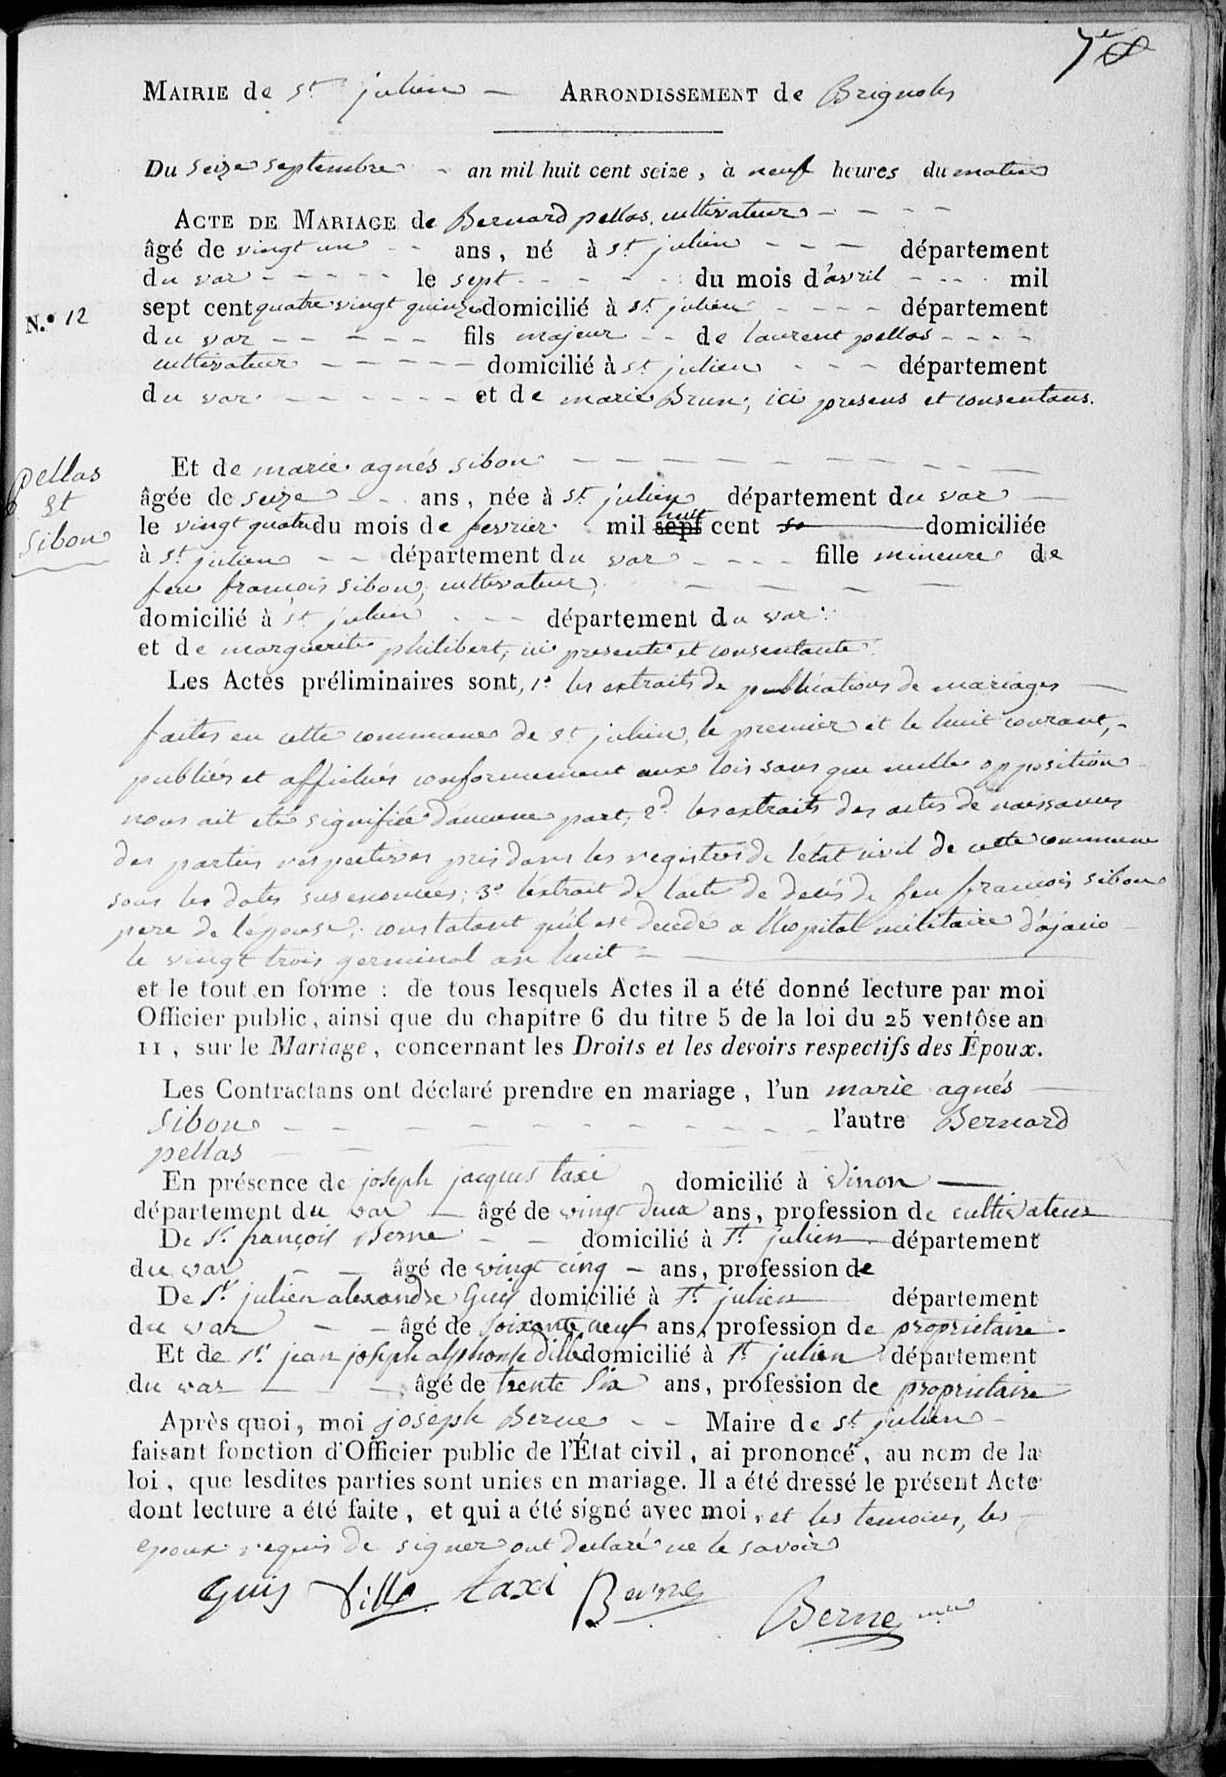 7e
MAIRIE de st julien - ARRONDISSEMENT de Brignoles
Du seize septembre - an mil huit cent seize, à neuf heures du matin
ACTE DE MARIAGE de Bernard pellas, cultivateur - - - -
âgé de vingt un - - ans, né à st julien - - - département
du var - - - - - le sept - - - - - du mois d'avril - - - mil
N.° 12
sept cent quatre vingt quinze domicilié à st julien - - - département
du var - - - - - fils majeur - - de laurent pellas - - - -
cultivateur - - - - - domicilié à st julien - - - département
du var - - - - - - et de marie Brun, ici presens et consentans.
pellas
Et
Sibon
Et de marie agnés sibon - - - - - - - - - - -
âgée de seize - - ans, née à st julien département du var -
le vingt quatre du mois de fevrier mil sept huit cent domiciliée
à st julien - - département du var - - - - fille mineure de
feu françois sibon, cultivateur, - - - -
domicilié à st julien - - - département du var
et de marguerite philibert, ici presente et consentante.
Les Actes préliminaires sont, 1° les extraits de publications de mariages -
faites en cette commune de st julien, le premier et le huit courant, -
publiés et affichés conformement aux lois sans que nulle opposition
nous ait été signifiée d'aucune part; 2° les extraits des actes de naissances
des parties respectives pris dans les registres de l'état civil de cette commune
sous les dates sus enoncées; 3° l'extrait de l'acte de decés de feu françois sibon
pere de l'épouse, constatant qu'il est decedé a l'hopital militaire d'ajacio -
le vingt trois germinal an huit -
et le tout en forme : de tous lesquels Actes il a été donné lecture par moi
Officier public, ainsi que du chapitre 6 du titre 5 de la loi du 25 ventôse an
11, sur le Mariage, concernant les Droits et les devoirs respectifs des Époux.
Les Contractans ont déclaré prendre en mariage, l'un marie agnés -
sibon - - - - - - - - - - - l'autre Bernard
pellas - -
En présence de joseph jacques taxi domicilié à Vinon -
département du var - âgé de vingt deux ans, profession de cultivateur
De Sr françois Berne - - domicilié à St julien département
du var - - âgé de vingt cinq - ans, profession de
De Sr julien alexandre Guis domicilié à St julien département
du var - - âgé de soixante neuf ans, profession de propriétaire.
Et de Sr jean joseph alphonse dille domicilié à St julien département
du var - - - âgé de trente six ans, profession de propriétaire
Après quoi, moi joseph Berne - - Maire de st julien -
faisant fonction d'Officier public de l'État civil, ai prononcé, au nom de la
loi, que lesdites parties sont unies en mariage. Il a été dressé le présent Acte
dont lecture a été faite, et qui a été signé avec moi, et les temoins, les
epoux requis de signer ont declaré ne le savoir
Guis Dille taxi Berne
Berne